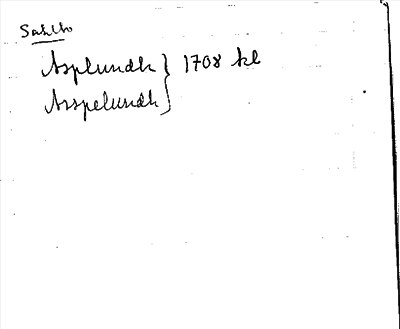 Asplundh } 1708 kl
Asspelundh